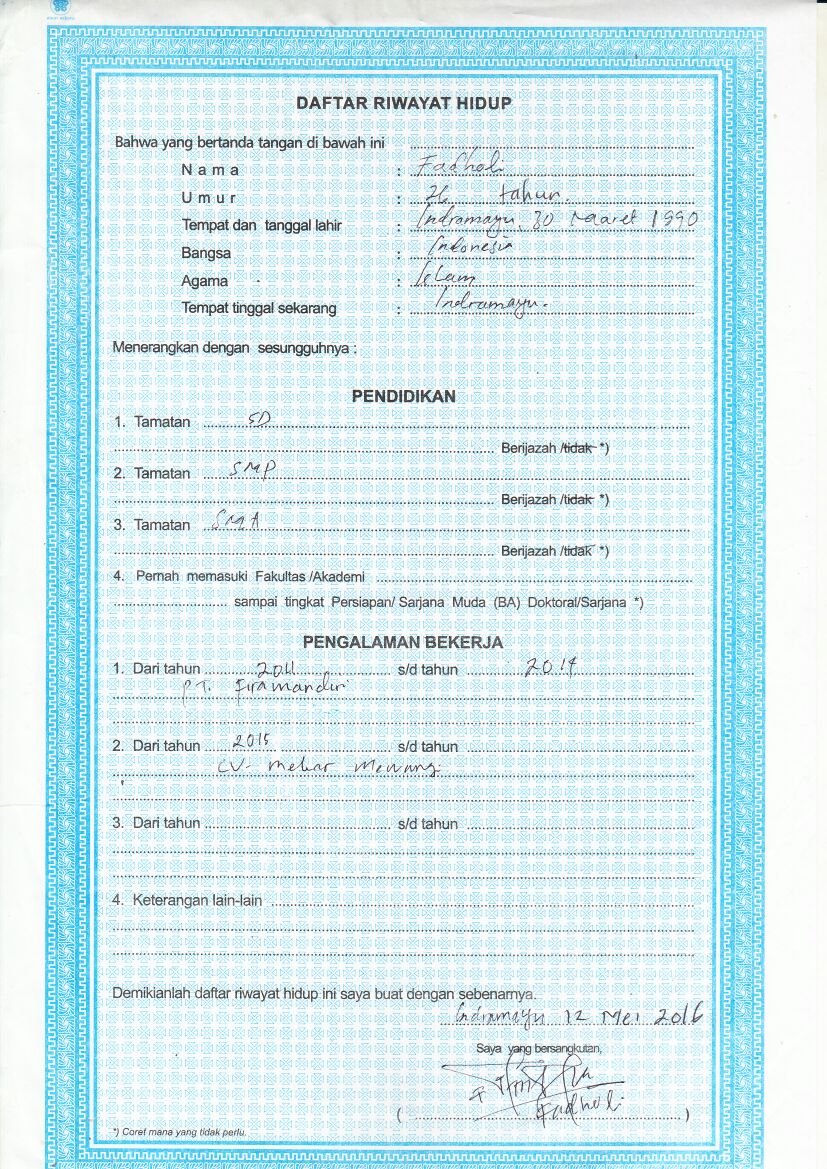 DAFTAR RIWAYAT HIDUP
Bahwa yang bertanda tangan di bawah ini
Nama : Fadholi
Umur : 26 tahun.
Tempat dan tanggal lahir : Indramayu, 30 Maaret 1990
Bangsa : Indonesia
Agama : Islam
Tempat tinggal sekarang : Indramayu.
Menerangkan dengan sesungguhnya :
PENDIDIKAN
1. Tamatan SD
Berijazah /tidak *)
2. Tamatan SMP
Berijazah /tidak *)
3. Tamatan SMA
Berijazah /tidak *)
4. Pernah memasuki Fakultas /Akademi
sampai tingkat Persiapan/ Sarjana Muda (BA) Doktoral/Sarjana *)
PENGALAMAN BEKERJA
1. Dari tahun 2011 s/d tahun 2014
PT. Firamandiri
2. Dari tahun 2015 s/d tahun
CV- mekar Menang
3. Dari tahun s/d tahun
4. Keterangan lain-lain
Demikianlah daftar riwayat hidup ini saya buat dengan sebenarnya.
Indramayu 12 Mei 2016
Saya yang bersangkutan,
( Fadholi )
*) Coret mana yang tidak perlu.